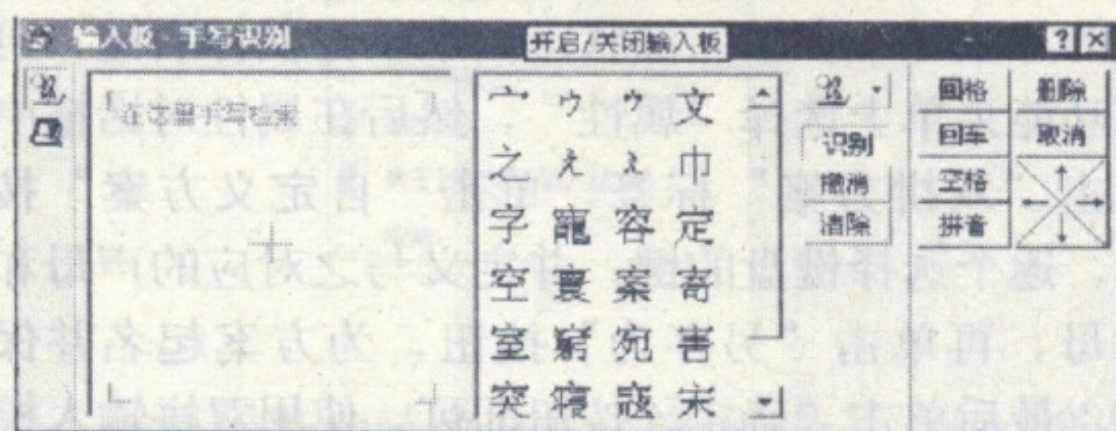 输入板 - 手写识别
开启/关闭输入板
在这里手写检索
宀 ゥ ウ 文
之 え ぇ 巾
字 寵 容 定
空 寰 案 寄
室 窮 宛 害
突 寝 寇 宋
识别
撤消
清除
回格 删除
回车 取消
空格
拼音